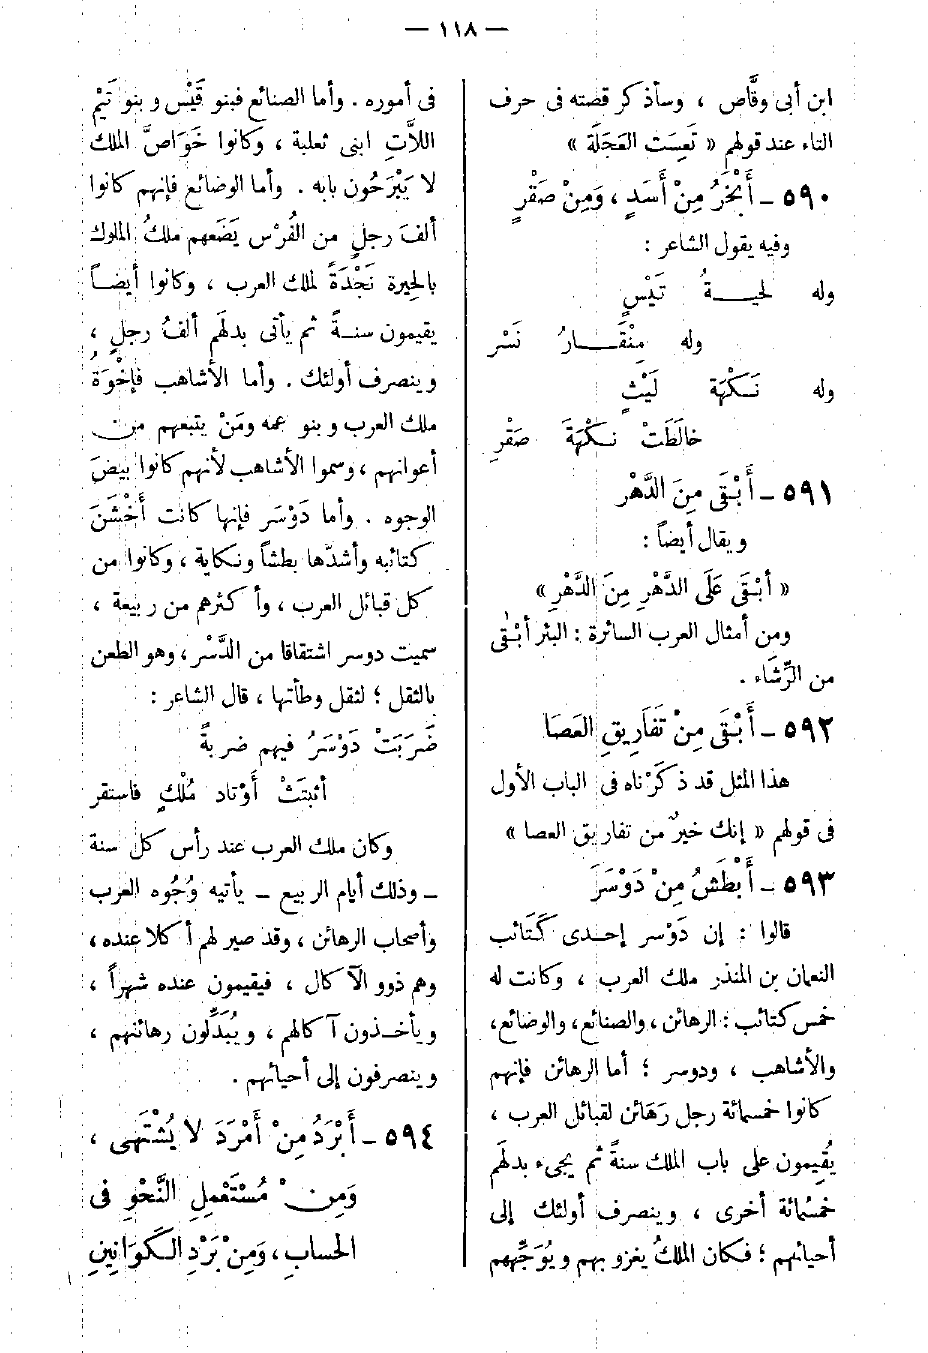 — ١١٨ —
ابن أبى وقَّاص ، وسأذكر قصته فى حرف
التاء عند قولهم « تَعِسَت العَجَلَة »
٥٩٠ ــ أَبْخَرُ مِنْ أَسَدٍ ، وَمِنْ صَقْرٍ
وفيه يقول الشاعر :
وله لحيــــةُ تَيْسٍ
وله مِنْقَـــــارُ نَسْر
وله نَــكْهَة لَيْثٍ
خالَطَتْ نـكْهَةَ صَقْرِ
٥٩١ ــ أَبْقَى مِنَ الدَّهْر
ويقال أيضاً :
« أبْقَى عَلَى الدَّهْرِ مِنَ الدَّهْرِ »
ومن أمثال العرب السائرة : البئر أبْقَى
من الرِّشَاء .
٥٩٢ ــ أَبْقَى مِنْ تَفَارِيقِ العَصَا
هذا المثل قد ذكَرْناه فى الباب الأول
فى قولهم « إنك خيرٌ من تفاريق العصا »
٥٩٣ ــ أَبْطَشُ مِنْ دَوْسَرَ
قالوا : إن دَوْسر إحـدى كَتَائب
النعمان بن المنذر ملك العرب ، وكانت له
خمس كتائب : الرهائن ، والصنائع ، والوضائع ،
والأشاهب ، ودوسر ؛ أما الرهائن فإنهم
كانوا خمسمائة رجل رَهَائن لقبائل العرب ،
يُقِيمون على باب الملك سنةً ثم يجىء بدلَهم
خمسُمائة أخرى ، وينصرف أولئك إلى
أحيائهم ؛ فكان الملكُ يغزو بهم ويُوَجِّههم
فى أموره . وأما الصنائع فبنو قَيْس وبنو تَيْم
اللاَّتِ ابنى ثعلبة ، وكانوا خَوَاصَّ الملك
لا يَبْرَحُون بابه . وأما الوضائع فإنهم كانوا
ألفَ رجلٍ من الفُرْس يَضَعهم ملكُ الملوك
بالحِيرة نَجْدَةً لملك العرب ، وكانوا أيضـاً
يقيمون سنـةً ثم يأتى بدلَهم ألفُ رجلٍ ،
وينصرف أولئك . وأما الأشاهب فإخْوَةُ
ملك العرب وبنو عمه ومَنْ يتبعهم من
أعوانهم ، وسموا الأشاهب لأنهم كانوا بيضَ
الوجوه . وأما دَوْسَر فإنها كانت أخْشَنَ
كتائبه وأشدّها بطشاً ونكاية ، وكانوا من
كل قبائل العرب ، وأكثرهم من ربيعة ،
سميت دوسر اشتقاقا من الدَّسْر ، وهو الطعن
بالثقل ؛ لثقل وطأتها ، قال الشاعر :
ضَرَبَتْ دَوْسَرُ فيهم ضربةً
أثبتَتْ أوْتاد مُلْكٍ فاستقر
وكان ملك العرب عند رأس كل سنة
ــ وذلك أيام الربيع ــ يأتيه وُجُوه العرب
وأصحاب الرهائن ، وقد صير لهم أكلا عنده ،
وهم ذوو الآكال ، فيقيمون عنده شهراً ،
ويأخـذون آكالهم ، ويُبَدِّلون رهائنهم ،
وينصرفون إلى أحيائهم .
٥٩٤ ــ أَبْرَدُ مِنْ أَمْرَدَ لا يُشْتَهَى ،
وَمِنْ مُسْتَعْمِلِ النَّحْوِ فى
الحسابِ ، وَمِنْ بَرْدِ الـكَوَانِينِ